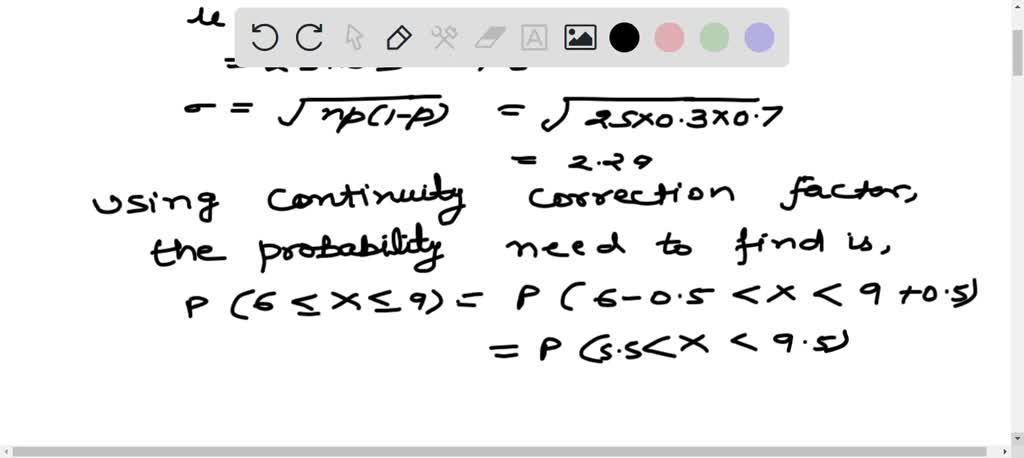 μ
σ = √np(1-p) = √25×0.3×0.7
= 2.29
using continuity correction factor,
the probability need to find is,
P (6 ≤ x ≤ 9) = P (6-0.5 < x < 9 +0.5)
= P (5.5 < x < 9.5)